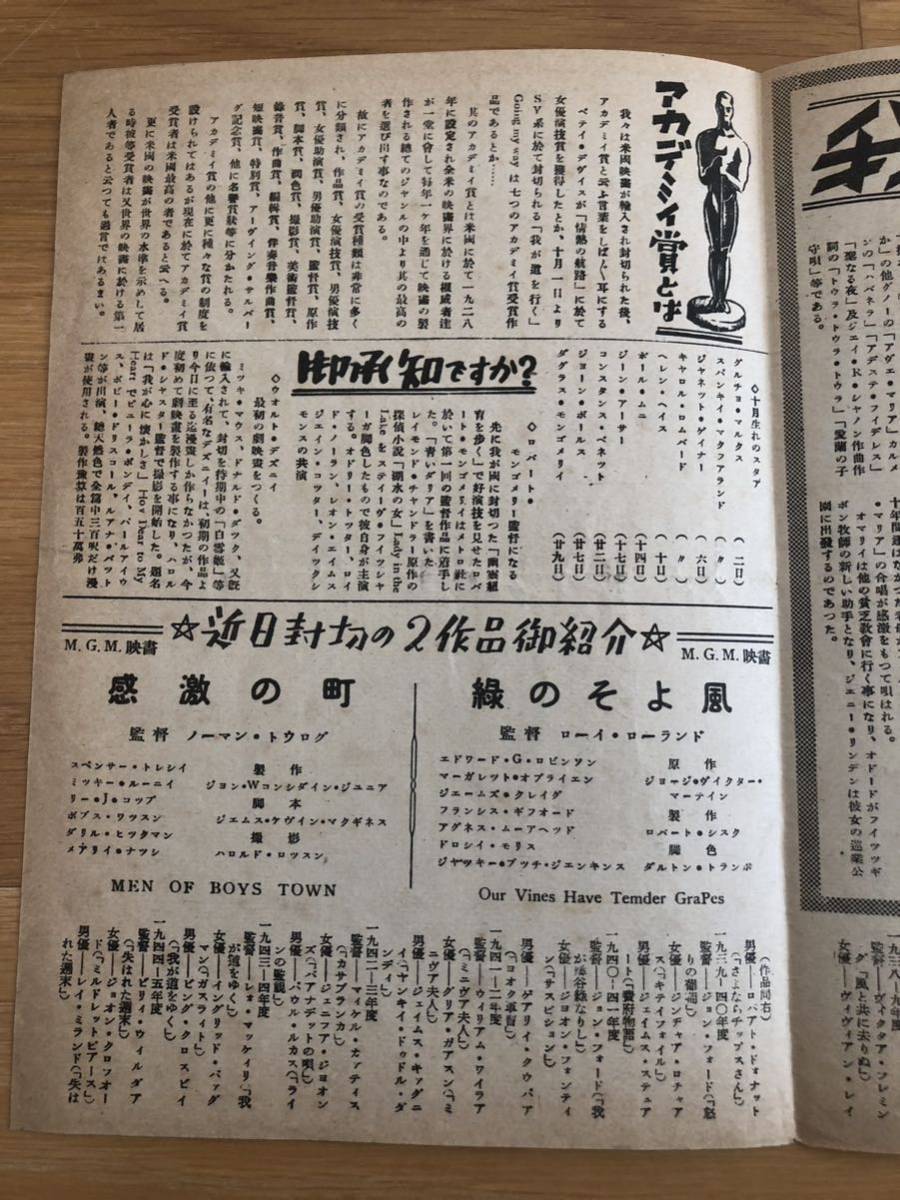 アカデミイ賞とは
我々は米國映畫が輸入され封切られた後、
アカデミイ賞と云ふ言葉をしば〳〵耳にする
ベテイ・デヴイスが「情熱の航路」に於て
女優演技賞を獲得したとか、十月一日より
SY系に於て封切られる「我が道を行く」
Going my way は七つのアカデミイ賞受賞作
品であるとか……
其のアカデミイ賞とは米國に於て一九二八
年に設定され全米の映畫界に於ける權威者達
が一堂に會して毎年一ケ年を通じて映畫の製
作される總てのジヤンルの中より其の最高の
者を選び出す事なのである。
故にアカデミイ賞の受賞種類は非常に多く
に分類され、作品賞、女優演技賞、男優演技
賞、女優助演賞、男優助演賞、監督賞、原作
賞、脚本賞、潤色賞、撮影賞、美術監督賞、
錄音賞、作曲賞、編輯賞、伴奏音樂作曲賞、
短映畫賞、特別賞、アーヴイング・サルバー
グ記念賞、他に名譽賞狀等に分かたれる。
アカデミイ賞の他に更に種々な賞の制度を
設けられてはあるが現在に於てアカデミイ賞
受賞者は米國最高の者であると云へる。
更に米國の映畫が世界の水準を示めして居
る時彼等受賞者は又世界の映畫に於ける第一
人者であると云つても過言ではあるまい。
御承知ですか?
◇十月生れのスタア
グルチョ・マルクス (二日)
スパンキイ・マクフアランド (〃)
ジャネット・ゲイナー (六日)
キャロル・ロムバード (〃)
ヘレン・ヘイス (十日)
ポール・ムニ
ジーン・アーサー (十七日)
ジョーン・フォンテイン (廿二日)
コンスタンス・ベネット
ダグラス・モンゴメリイ (廿九日)
◇ロバート・
モンゴメリー監督になる
先に我が國に封切つた「幽靈紐
育を歩く」で好演技を見せたロバ
ート・モンゴメリイはメトロ社に
於いて第一回の監督作品に着手し
た。「青いダリア」を書いた
レイモンド・チヤンドラー原作の
探偵小說「湖水の女」Lady in the
Lake をステイーヴ・フイツシヤ
ーが脚色したもので彼自身が主演
する。オードリー・トツター、ロイ
ド・ノーラン、レオン・エイムス
ジエイン・コツター、デイツクシ
モンスの共演
◇ウオルト・デズニイ
最初の劇映畫をつくる。
ミツキイ・マウス、ドナルド・ダツク、又既
に輸入されて、封切を待期中の「白雪姬」等
に依つて、有名なデズニイーは、初期の作品よ
り今日に至る迄漫畫しか作らなかつたが、今
度初めて劇映畫を製作する事になり、ハロル
ド・シヤスター監督で撮影を開始した。題名
は「我が心に懷かしき」How Dear to My
Heart でビユーラ・ボンデイ、バールアイヴ
ス、ボビー・ドリスコール、ルアナ・パツト
ン等が出演、總天然色で全篇中三百呎だけ漫
畫が使用される。製作豫算は百五十萬弗
☆近日封切の2作品御紹介☆
M.G.M.映畵
綠のそよ風
監督 ローイ・ローランド
原作
ジョージ・ヴイクター・
マーテイン
製作
ロバート・シスク
脚色
ダルトン・トランボ
エドワード・G・ロビンソン
マーガレット・オブライエン
ジェームズ・クレイグ
フランシス・ギフオード
アグネス・ムーアヘッド
ドロシイ・モリス
ジヤツキー・ブッチ・ジエンキンス
Our Vines Have Temder GraPes
M.G.M.映畵
感激の町
監督 ノーマン・トウログ
製作
ジョン・Wコンシダイン・ジユニア
脚本
ジェムス・ケヴイン・マクギネス
撮影
ハロルド・ロツスン
スペンサー・トレシイ
ミッキー・ルーニイ
リー・J・コッブ
ボブス・ワツスン
ダリル・ヒックマン
メアリイ・ナツシ
MEN OF BOYS TOWN
(作品同右)
男優――ロバアト・ドオナット
(「さよならチップスさん」)
一九三九―四〇年度
監督――ジョン・フォード(「怒
りの葡萄」)
女優――ジンヂャア・ロヂャア
ス(「キテイフオイル」)
男優――ジエイムス・ステュア
ート(「費府物語」)
一九四〇―四一年度
監督――ジョン・フォード(「我
が谷は綠なりし」)
女優――ジョオン・フォンテイ
ン(「サスピション」)
男優――ゲアリイ・クウパア
(「ヨオク軍曹」)
一九四一―二年度
監督――ウィリアム・ワイラア
(「ミニヴア夫人」)
女優――グリア・ガアスン(「ミ
ニヴア夫人」)
男優――ジェイムス・キャグニ
イ(「ヤンキイ・ドゥドル・ダ
ンデイ」)
一九四二―三年度
監督――マイケル・カアティス
(「カサブランカ」)
女優――ジェニファ・ジョオン
ズ(「ベアナデットの唄」)
男優――パウル・ルカス(「ライ
ンの監視」)
一九四三―四年度
監督――レオ・マッケリイ(「我
が道をゆく」)
女優――イングリッド・バアグ
マン(「ガスライト」)
男優――ビング・クロスビイ
(「我が道をゆく」)
一九四四―五年度
監督――ビリィ・ワイルダア
(「失はれた週末」)
女優――ジョオン・クロフオー
ド(「ミルドレットピアース」)
男優――レイ・ミランド(「失は
れた週末」)